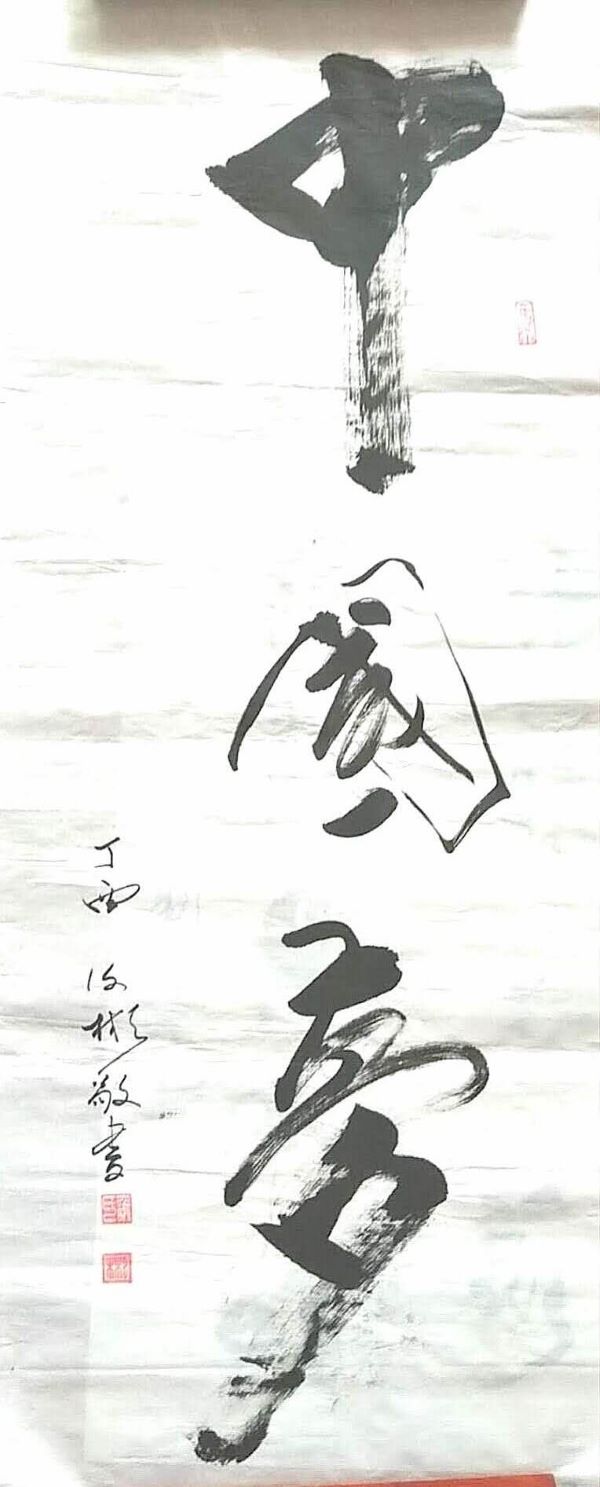 中國夢
丁酉 汝彬敬書